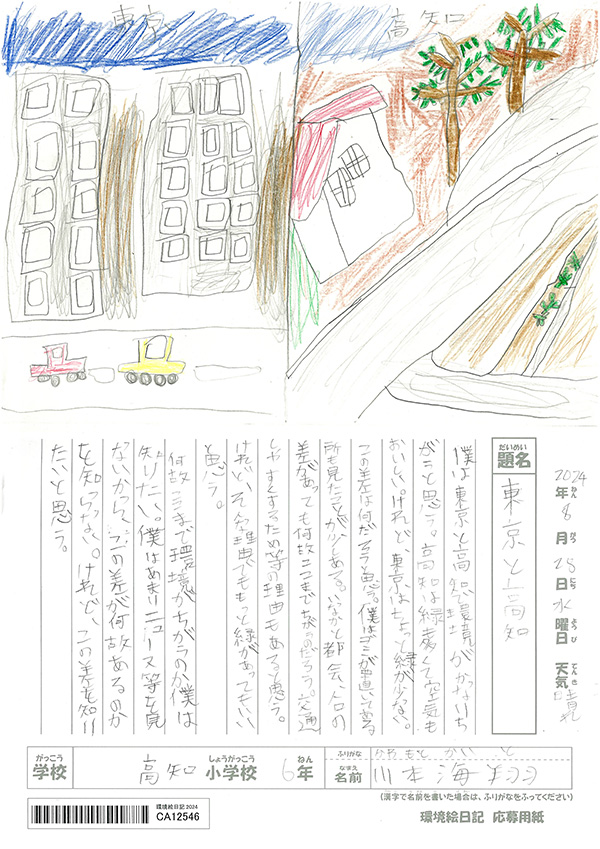 東京
高知
2024年8月28日水曜日 天気晴れ
題名 東京と高知
僕は東京と高知で環境がかなりち
がうと思う。高知は緑が多くて空気も
おいしい。けれど、東京はちょっと緑が少ない。
この差は何だろうと思う。僕はゴミが置いてある
所も見たことが少しある。いなかと都会、人口の
差があっても何故ここまで
しやすくするため等の理由もあると思う。
けれどいそんな理由でももっと緑があってもいい
と思う。
何故ここまで環境がちがうのか僕は
知りたい。僕はあまりニュース等を見
ないから、この差が何故あるのか
を知らない。けれど、この差を知り
たいと思う。
がっこう
学校 高知 しょうがっこう 小学校 6年 ねん
ふりがな かわもと かいと
なまえ 名前 川本海翔
(漢字で名前を書いた場合は、ふりがなをふってください)
環境絵日記 2024
CA12546
環境絵日記 応募用紙